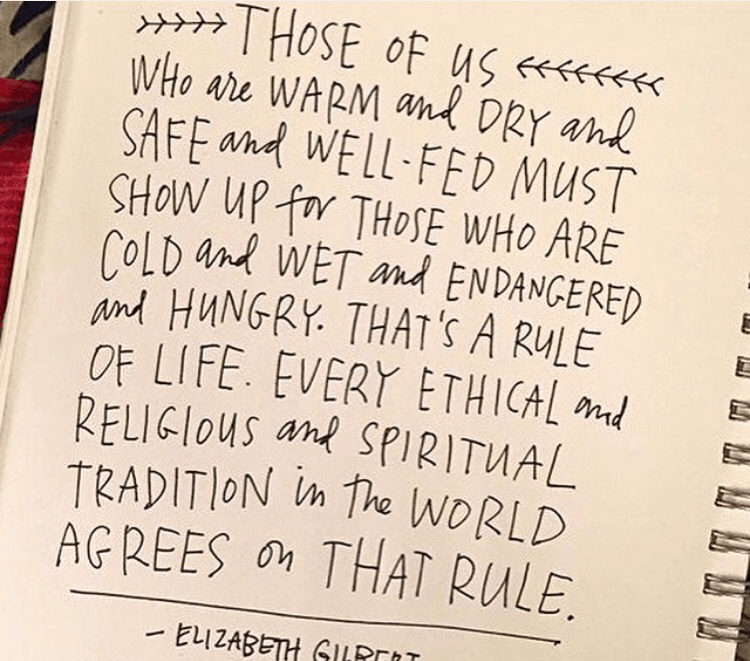 THOSE OF US
WHO are WARM and DRY and
SAFE and WELL-FED MUST
SHOW UP for THOSE WHO ARE
COLD and WET and ENDANGERED
and HUNGRY. THAT'S A RULE
OF LIFE. EVERY ETHICAL and
RELIGIOUS and SPIRITUAL
TRADITION in the WORLD
AGREES on THAT RULE.
- ELIZABETH GILBERT